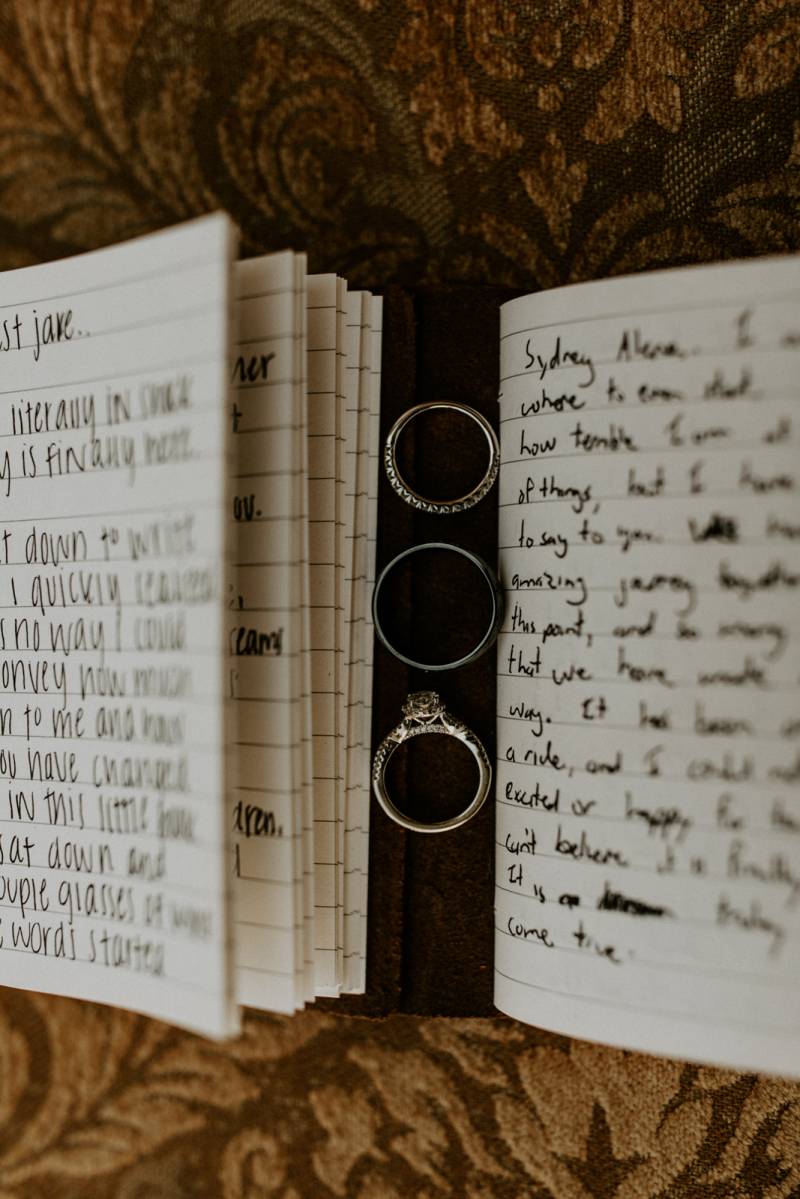 st jave..
literally in
y is finally here.
t down to write
I quickly realized
s no way I could
onvey how much
n to me and how
ou have changed
in this little
sat down and
ouple glasses of wine
e words started
her
t
w.
reams
dren.
Sydney Alena. I
where to even start.
how terrible I am at
of things, but I have
to say to you.
amazing journey together
this point, and so many
that we have made
way. It has been
a ride, and I could not
excited or happy for
can't believe it is finally
It is a
come true.